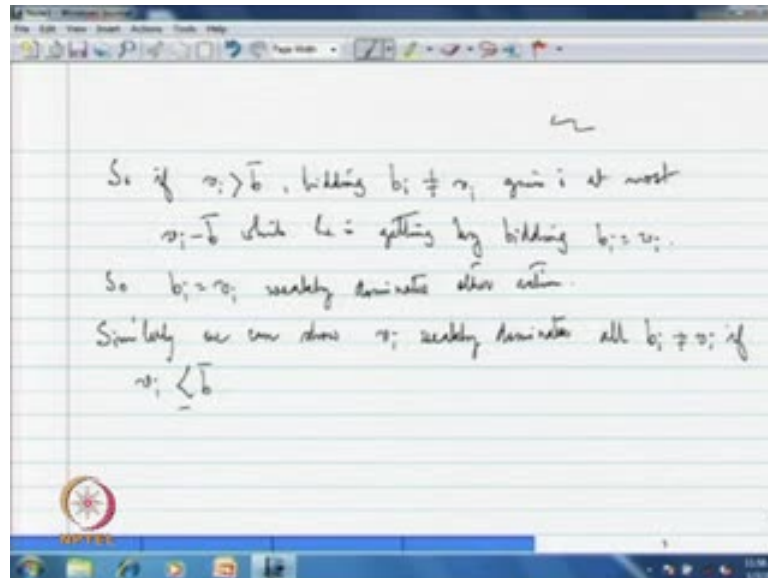 So if v_i > b̄, bidding b_i ≠ v_i gives i at most
v_i - b̄ which he is getting by bidding b_i = v_i.
So b_i = v_i weakly dominates other action.
Similarly we can show v_i weakly dominates all b_i ≠ v_i if
v_i ≤ b̄
NPTEL